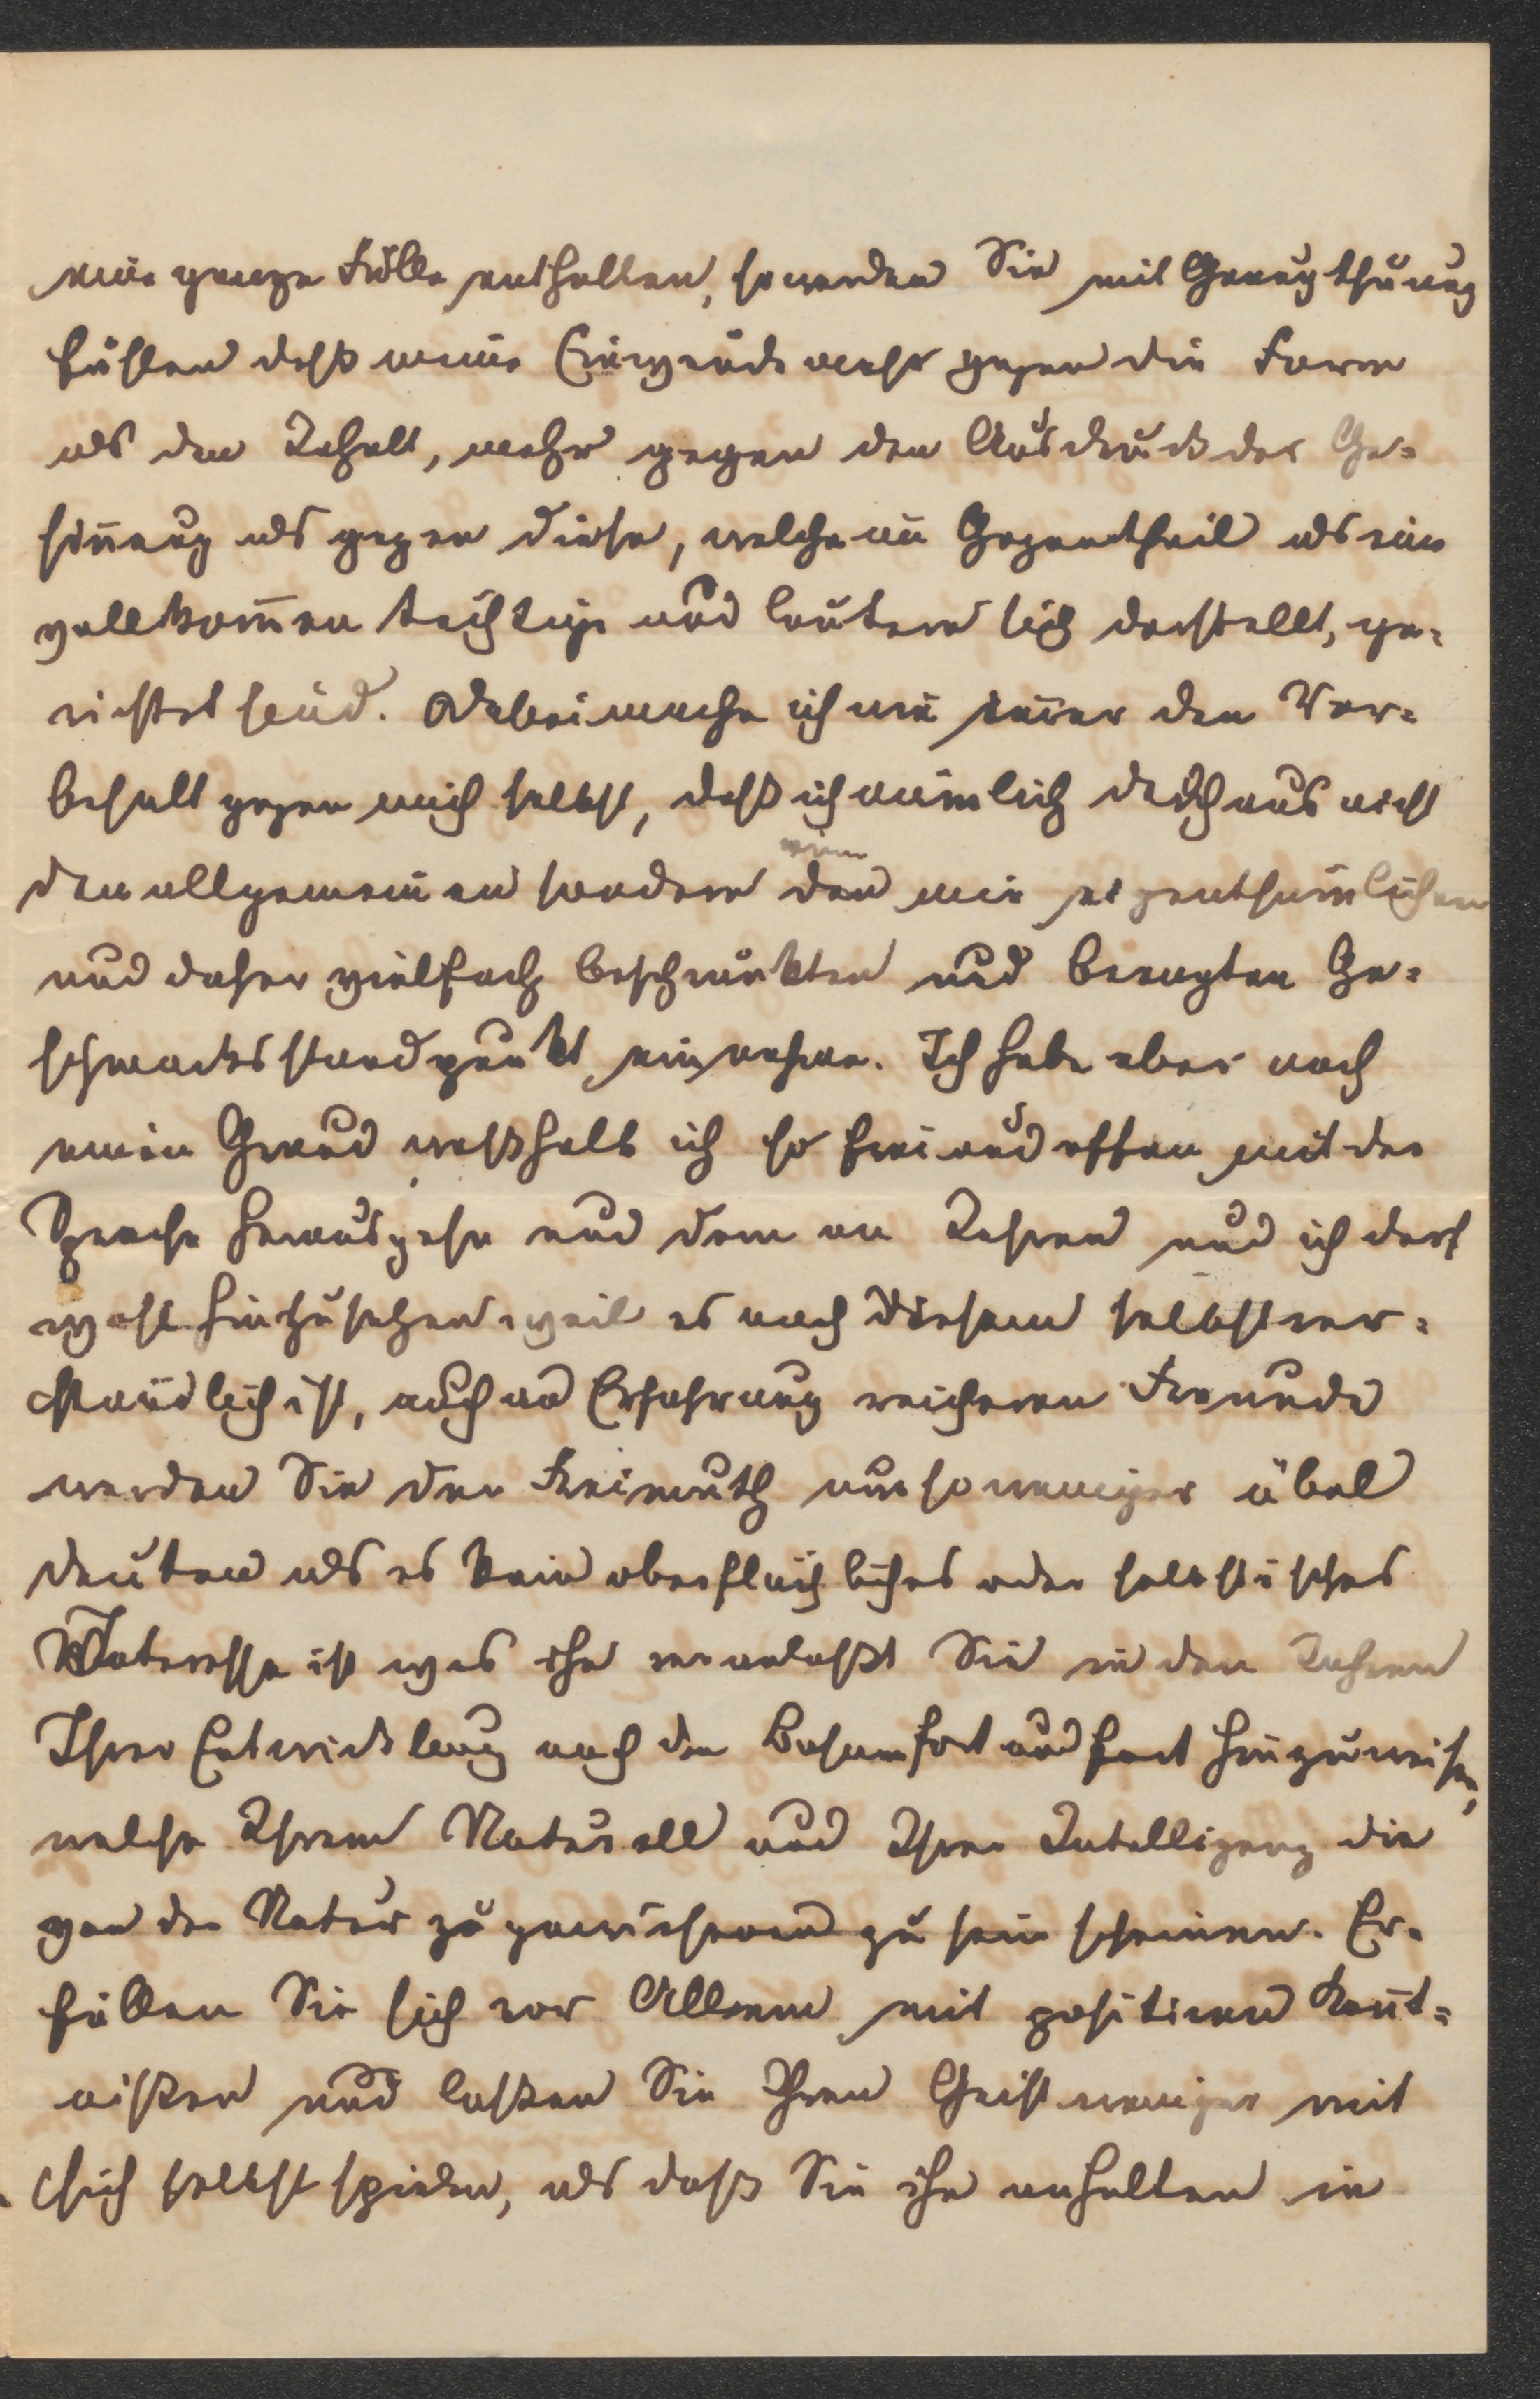 eine ganze Fülle enthalten, so werden Sie mit Genugthuung
fühlen daß meine Einwände mehr gegen die Form
als den Inhalt, mehr gegen den Ausdruck der Ge-
sin̄ung als gegen diese, welche im Gegentheil als eine
vollkom̄en tüchtige und lautere sich darstellt, ge-
richtet sind. Dabei mache ich nur im̄er den Vor-
behalt gegen mich selbst, daß ich nämlich durchaus nicht
den allgemeinen sondern einen den mir eigenthümlichen
und daher vielfach beschränkten und beengten Ge-
schmacksstandpunkt einnehme. Ich habe aber noch
einen Grund weßhalb ich so frei und offen mit der
Sprache herausgehe und dem an Jahren und ich darf
wohl hinzusetzen weil es nach diesem selbstver-
ständlich ist, auch an Erfahrung reicheren Freunde
werden Sie den Freimuth umsoweniger übel
deuten als es kein oberflächliches oder selbstisches
Interesse ist was ihn veranlaßt Sie in den Jahren
Ihrer Entwicklung auf den Bahnen fort und fort hinzuweisen,
welche Ihrem Naturell und Ihrer Intelligenz die
von der Natur zugewiesenen zu sein scheinen. Er-
füllen Sie sich vor Allem mit positiven Ken̄t-
nißen und laßen Sie Ihren Geist weniger mit
sich selbst spielen, als daß Sie ihn anhalten in